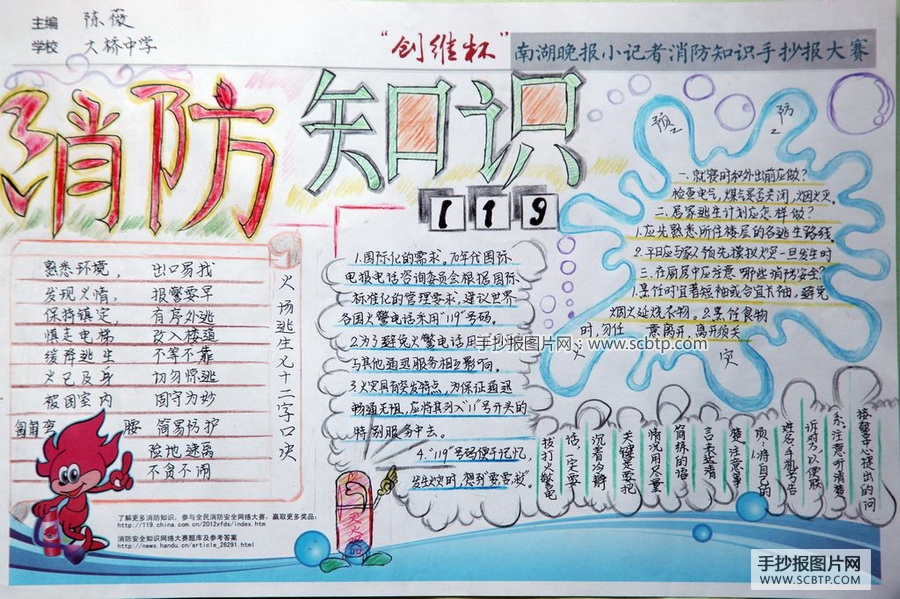 主编 陈薇
学校 大桥中学
"创维杯" 南湖晚报小记者消防知识手抄报大赛
消防知识
119
火场逃生九十二字口诀
熟悉环境， 出口易找
发现火情， 报警要早
保持镇定， 有序外逃
慎走电梯 改入楼道
缓降逃生 不等不靠
火已及身 切勿惊逃
被困室内 固守为妙
弯腰 简易防护
险地速离
不贪不闹
了解更多消防知识，参与全民消防安全网络大赛，赢取更多奖品：
http://119.china.com.cn/2012xfds/index.htm
消防安全知识网络大赛题库及参考答案
http://news.handu.cn/article_26291.html
1.国际化的需求。70年代国际
电报电话咨询委员会根据国际
标准化的管理要求，建议世界
各国火警电话采用"119"号码。
2.为了避免火警电话用
与其他通迅服务相互影响。
3.火灾具有突发特点，为保证通迅
畅通无阻，应将其列入"11"号开头的
特别服务中去。
4."119"号码便于记忆，
发生火灾时，想到"要要救"。
灭火器
预 防
一.就寝时和外出前应做？
检查电气，煤气是否关闭，烟火灭。
二.居家逃生计划应怎样做？
1.应先熟悉所住楼层的各逃生路线。
2.平日应与家人预先模拟火灾一旦发生时
三.在厨房中应注意哪些消防安全？
1.烹饪时宜著短袖或合宜衣袖，避免
烟火延烧衣物。2.烹饪食物
时，勿任 意离开，离开须关
火 灾
拨打火警电
话，一定要
沉着冷静
关键是要把
情况用尽量
简练的语
言表达清
楚。注意事
项：1.将自己的
姓名手机号告
诉对方，以便联
系。注意听清楚
接警中心提出的问
手抄报图片网：www.scbtp.com
手抄报图片网
WWW.SCBTP.COM